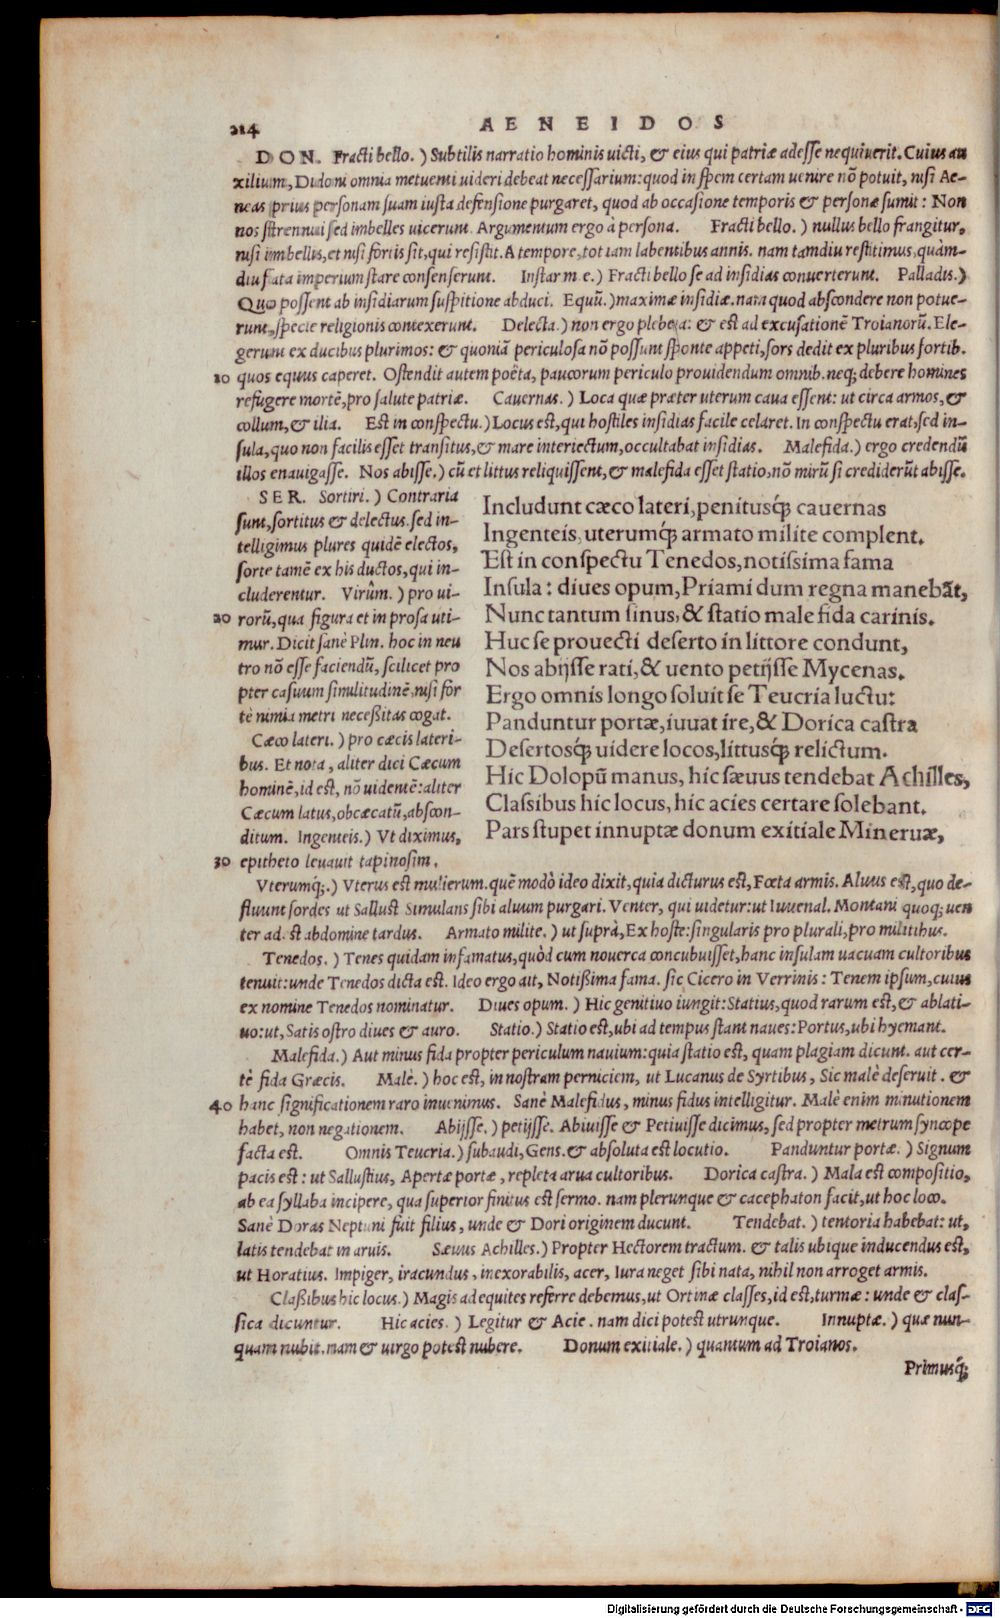 214
AENEIDOS
DON. Fracti bello.) Subtilis narratio hominis uicti, & eius qui patriæ adesse nequiuerit. Cuius au
xilium, Didoni omnia metuenti uideri debeat necessarium: quod in spem certam uenire nõ potuit, nisi Ae-
neas prius personam suam iusta defensione purgaret, quod ab occasione temporis & personæ sumit: Non
nos strennui sed imbelles uicerunt. Argumentum ergo à persona. Fracti bello.) nullus bello frangitur,
nisi imbellis, et nisi fortis sit, qui resistit. A tempore, tot iam labentibus annis. nam tamdiu restitimus, quàm-
diu fata imperium stare consenserunt. Instar m.e.) Fracti bello se ad insidias conuerterunt. Palladis.)
Quo possent ab insidiarum suspitione abduci. Equũ.) maximæ insidiæ. nam quod abscondere non potue-
runt, specie religionis contexerunt. Delecta.) non ergo plebeia: & est ad excusationẽ Troianorũ. Ele-
gerunt ex ducibus plurimos: & quoniã periculosa nõ possunt sponte appeti, sors dedit ex pluribus fortib.
10 quos equus caperet. Ostendit autem poëta, paucorum periculo prouidendum omnib. neq; debere homines
refugere mortẽ, pro salute patriæ. Cauernas.) Loca quæ præter uterum caua essent: ut circa armos, &
collum, & ilia. Est in conspectu.) Locus est, qui hostiles insidias facile celaret. In conspectu erat, sed in-
sula, quo non facilis esset transitus, & mare interiectum, occultabat insidias. Malefida.) ergo credendũ
illos enauigasse. Nos abisse.) cũ et littus reliquissent, & malefida esset statio, nõ mirũ si crediderũt abisse.
SER. Sortiri.) Contraria
sunt, sortitus & delectus. sed in-
telligimus plures quidẽ electos,
sorte tamẽ ex his ductos, qui in-
cluderentur. Virûm.) pro ui-
20 rorũ, qua figura et in prosa uti-
mur. Dicit sanè Plin. hoc in neu
tro nõ esse faciendũ, scilicet pro
pter casuum similitudinẽ, nisi for
tè nimia metri neceßitas cogat.
Cæco lateri.) pro cæcis lateri-
bus. Et nota, aliter dici Cæcum
hominẽ, id est, nõ uidentẽ: aliter
Cæcum latus, obcæcatũ, abscon-
ditum. Ingenteis.) Vt diximus,
30 epitheto leuauit tapinosim.
Includunt cæco lateri, penitusq́; cauernas
Ingenteis, uterumq́; armato milite complent.
Est in conspectu Tenedos, notissima fama
Insula: diues opum, Priami dum regna manebãt,
Nunc tantum sinus, & statio male fida carinis.
Huc se prouecti deserto in littore condunt,
Nos abijsse rati, & uento petijsse Mycenas.
Ergo omnis longo soluit se Teucria luctu:
Panduntur portæ, iuuat ire, & Dorica castra
Desertosq́; uidere locos, littusq́; relictum.
Hic Dolopũ manus, hic sæuus tendebat Achilles,
Classibus hic locus, hic acies certare solebant.
Pars stupet innuptæ donum exitiale Mineruæ,
Vterumq́;.) Vterus est mulierum. quẽ modò ideo dixit, quia dicturus est, Fœta armis. Aluus est, quo de-
fluunt sordes ut Sallust Simulans sibi aluum purgari. Venter, qui uidetur: ut Iuuenal. Montani quoq; uen
ter adest abdomine tardus. Armato milite.) ut suprà, Ex hoste: singularis pro plurali, pro militibus.
Tenedos.) Tenes quidam infamatus, quòd cum nouerca concubuisset, hanc insulam uacuam cultoribus
tenuit: unde Tenedos dicta est. Ideo ergo ait, Notißima fama. sic Cicero in Verrinis: Tenem ipsum, cuius
ex nomine Tenedos nominatur. Diues opum.) Hic genitiuo iungit: Statius, quod rarum est, & ablati-
uo: ut, Satis ostro diues & auro. Statio.) Statio est, ubi ad tempus stant naues: Portus, ubi hyemant.
Malefida.) Aut minus fida propter periculum nauium: quia statio est, quam plagiam dicunt. aut cer-
tè fida Græcis. Malè.) hoc est, in nostram perniciem, ut Lucanus de Syrtibus, Sic malè deseruit. &
40 hanc significationem raro inuenimus. Sanè Malefidus, minus fidus intelligitur. Malè enim minutionem
habet, non negationem. Abijsse.) petijsse. Abiuisse & Petiuisse dicimus, sed propter metrum syncope
facta est. Omnis Teucria.) subaudi, Gens. & absoluta est locutio. Panduntur portæ.) Signum
pacis est: ut Sallustius, Apertæ portæ, repleta arua cultoribus. Dorica castra.) Mala est compositio,
ab ea syllaba incipere, qua superior finitus est sermo. nam plerunque & cacephaton facit, ut hoc loco.
Sanè Doras Neptuni fuit filius, unde & Dori originem ducunt. Tendebat.) tentoria habebat: ut,
latis tendebat in aruis. Sæuus Achilles.) Propter Hectorem tractum. & talis ubique inducendus est,
ut Horatius. Impiger, iracundus, inexorabilis, acer, Iura neget sibi nata, nihil non arroget armis.
Claßibus hic locus.) Magis ad equites referre debemus, ut Ortinæ classes, id est, turmæ: unde & clas-
sica dicuntur. Hic acies.) Legitur & Acie. nam dici potest utrunque. Innuptæ.) quæ nun-
quam nubit. nam & uirgo potest nubere. Donum exitiale.) quantum ad Troianos.
Primusq́;
Digitalisierung gefördert durch die Deutsche Forschungsgemeinschaft - DFG